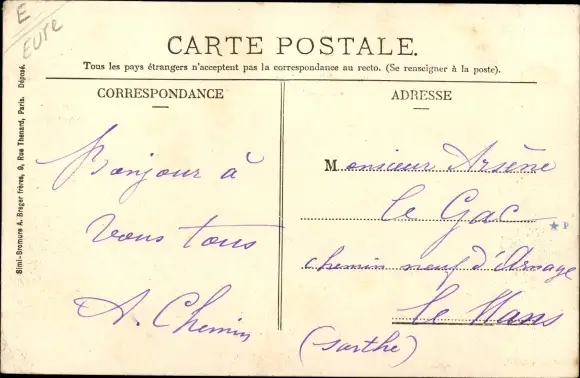 E
Eure
CARTE POSTALE.
Tous les pays étrangers n'acceptent pas la correspondance au recto. (Se renseigner à la poste).
CORRESPONDANCE
Bonjour à
Vous tous
A. Chemin
ADRESSE
Monsieur Arsène
Le Gac
chemin neuf d'Arnage
Le Mans
(Sarthe)
P
Simi-Bromure A. Breger frères, 9, Rue Thenard, Paris. Déposé.